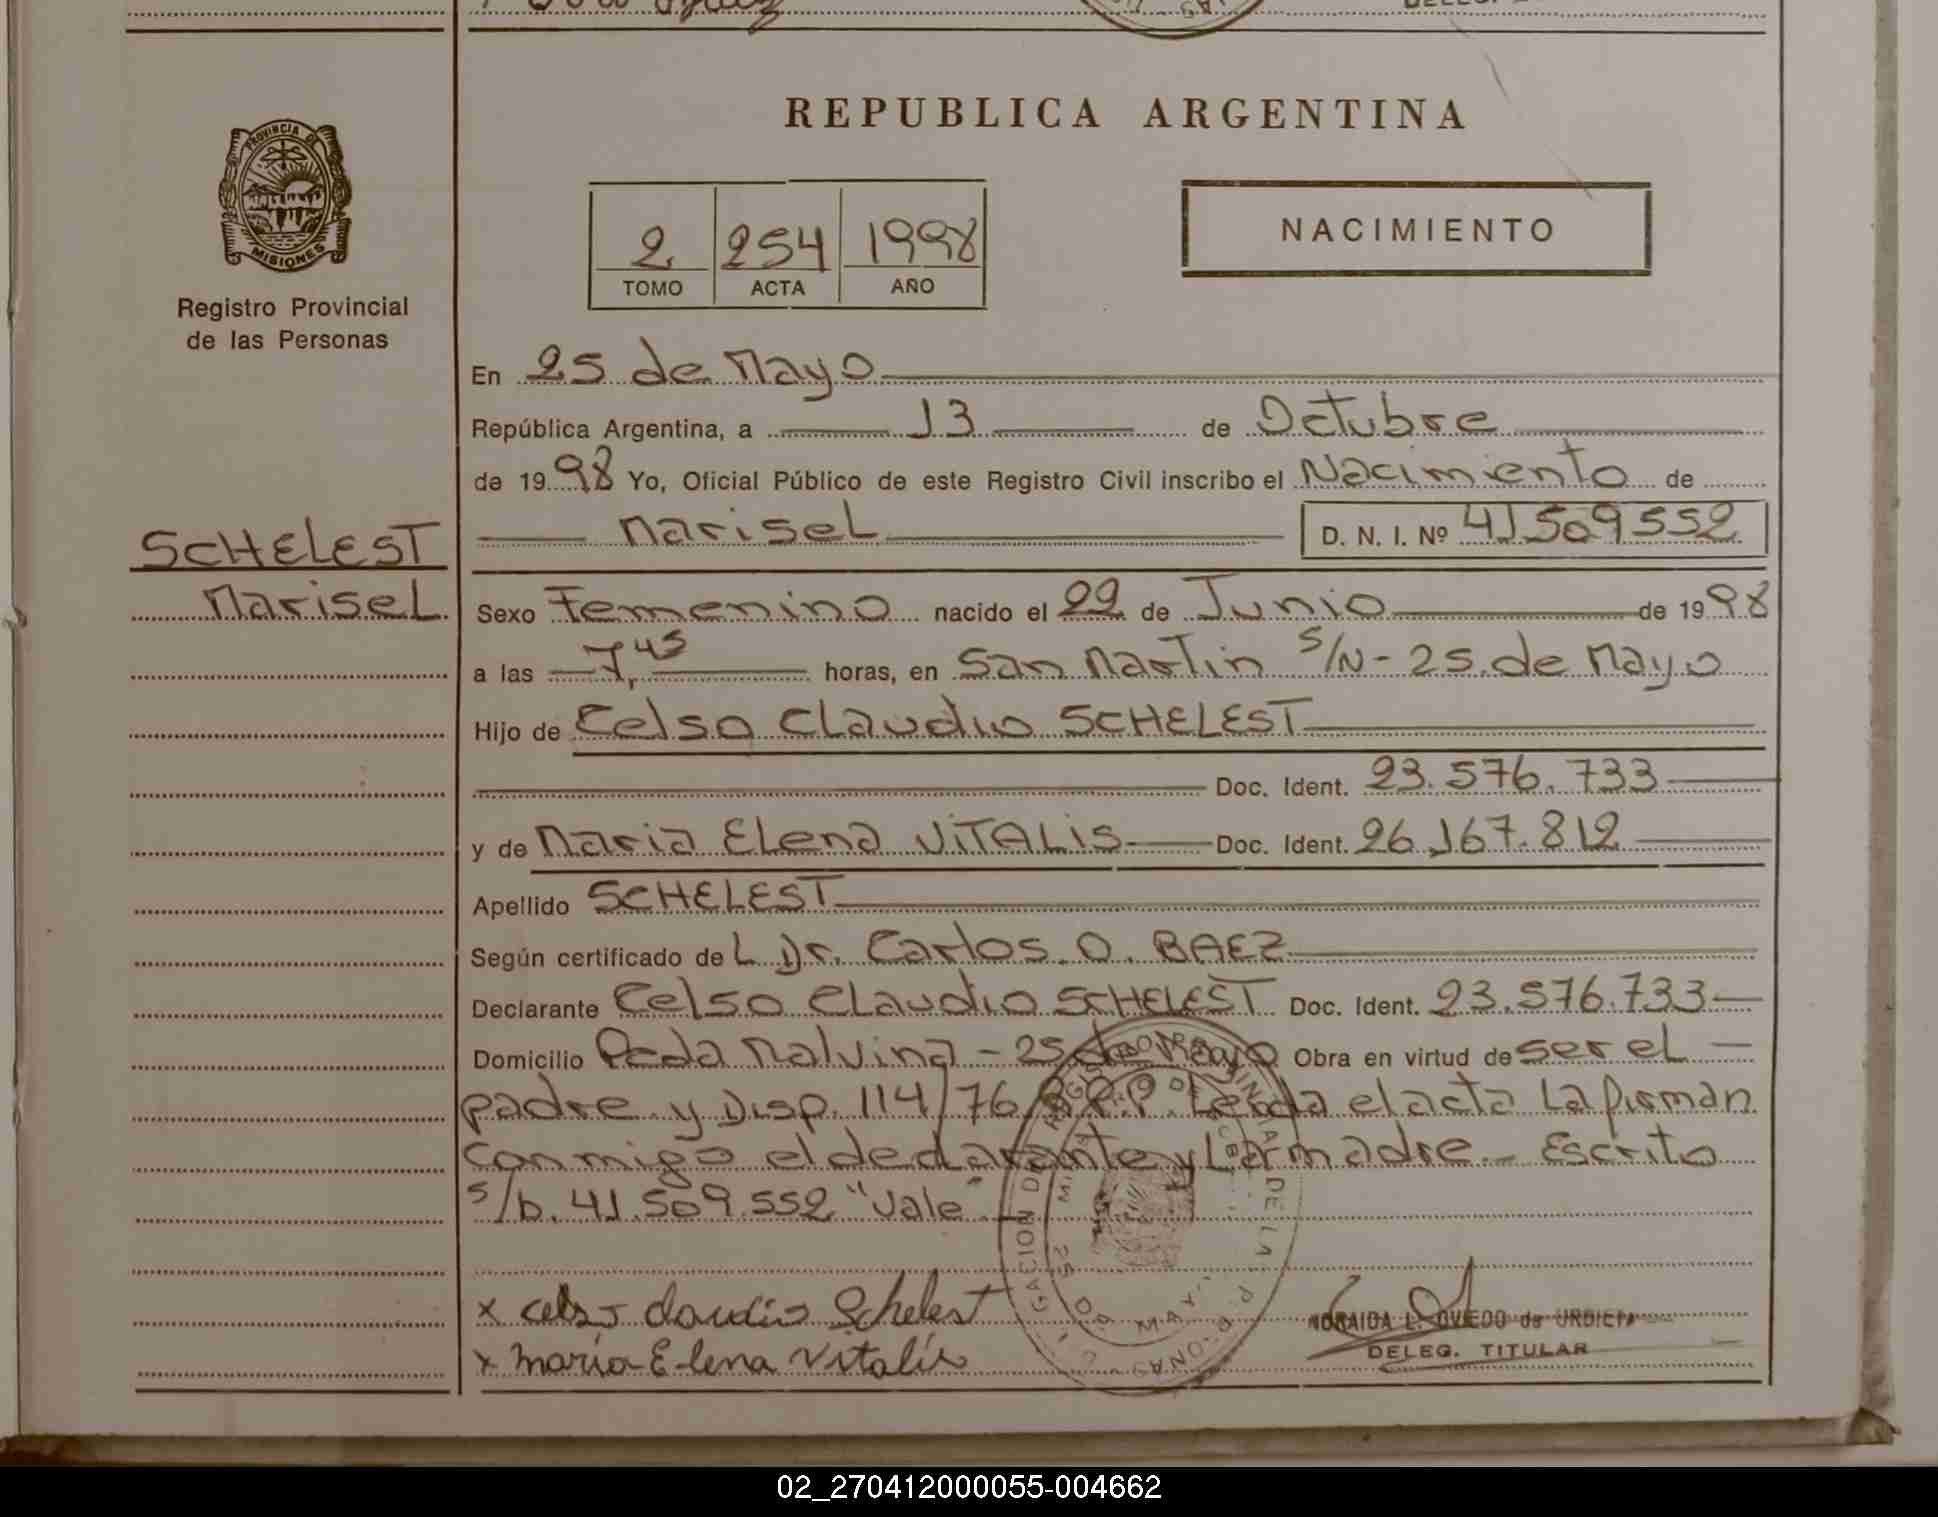 REPUBLICA ARGENTINA
PROVINCIA DE
MISIONES
Registro Provincial
de las Personas
2 254 1998
TOMO ACTA AÑO
NACIMIENTO
En 25 de Mayo
República Argentina, a 13 de Octubre
de 1998 Yo, Oficial Público de este Registro Civil inscribo el Nacimiento de
SCHELEST
Marisel
Marisel D. N. I. Nº 41509552
Sexo Femenino nacido el 22 de Junio de 1998
a las 7,45 horas, en San Martin S/N - 25 de Mayo
Hijo de Celso Claudio SCHELEST
Doc. Ident. 23.576.733
y de Maria Elena VITALIS Doc. Ident. 26.167.812
Apellido SCHELEST
Según certificado de L Dr. Carlos O. BAEZ
Declarante Celso Claudio SCHELEST Doc. Ident. 23.576.733
Domicilio Pcda Malvina - 25 de Mayo Obra en virtud de ser el
padre y Disp. 114/76 R.P.P. Leida el acta La firman
conmigo el declarante y La madre - Escrito
s/b. 41.509.552 "Vale"
x Celso claudio Schelest
x maria Elena Vitalis
ZORAIDA L. OVIEDO de URBIETA
DELEG. TITULAR
02_270412000055-004662